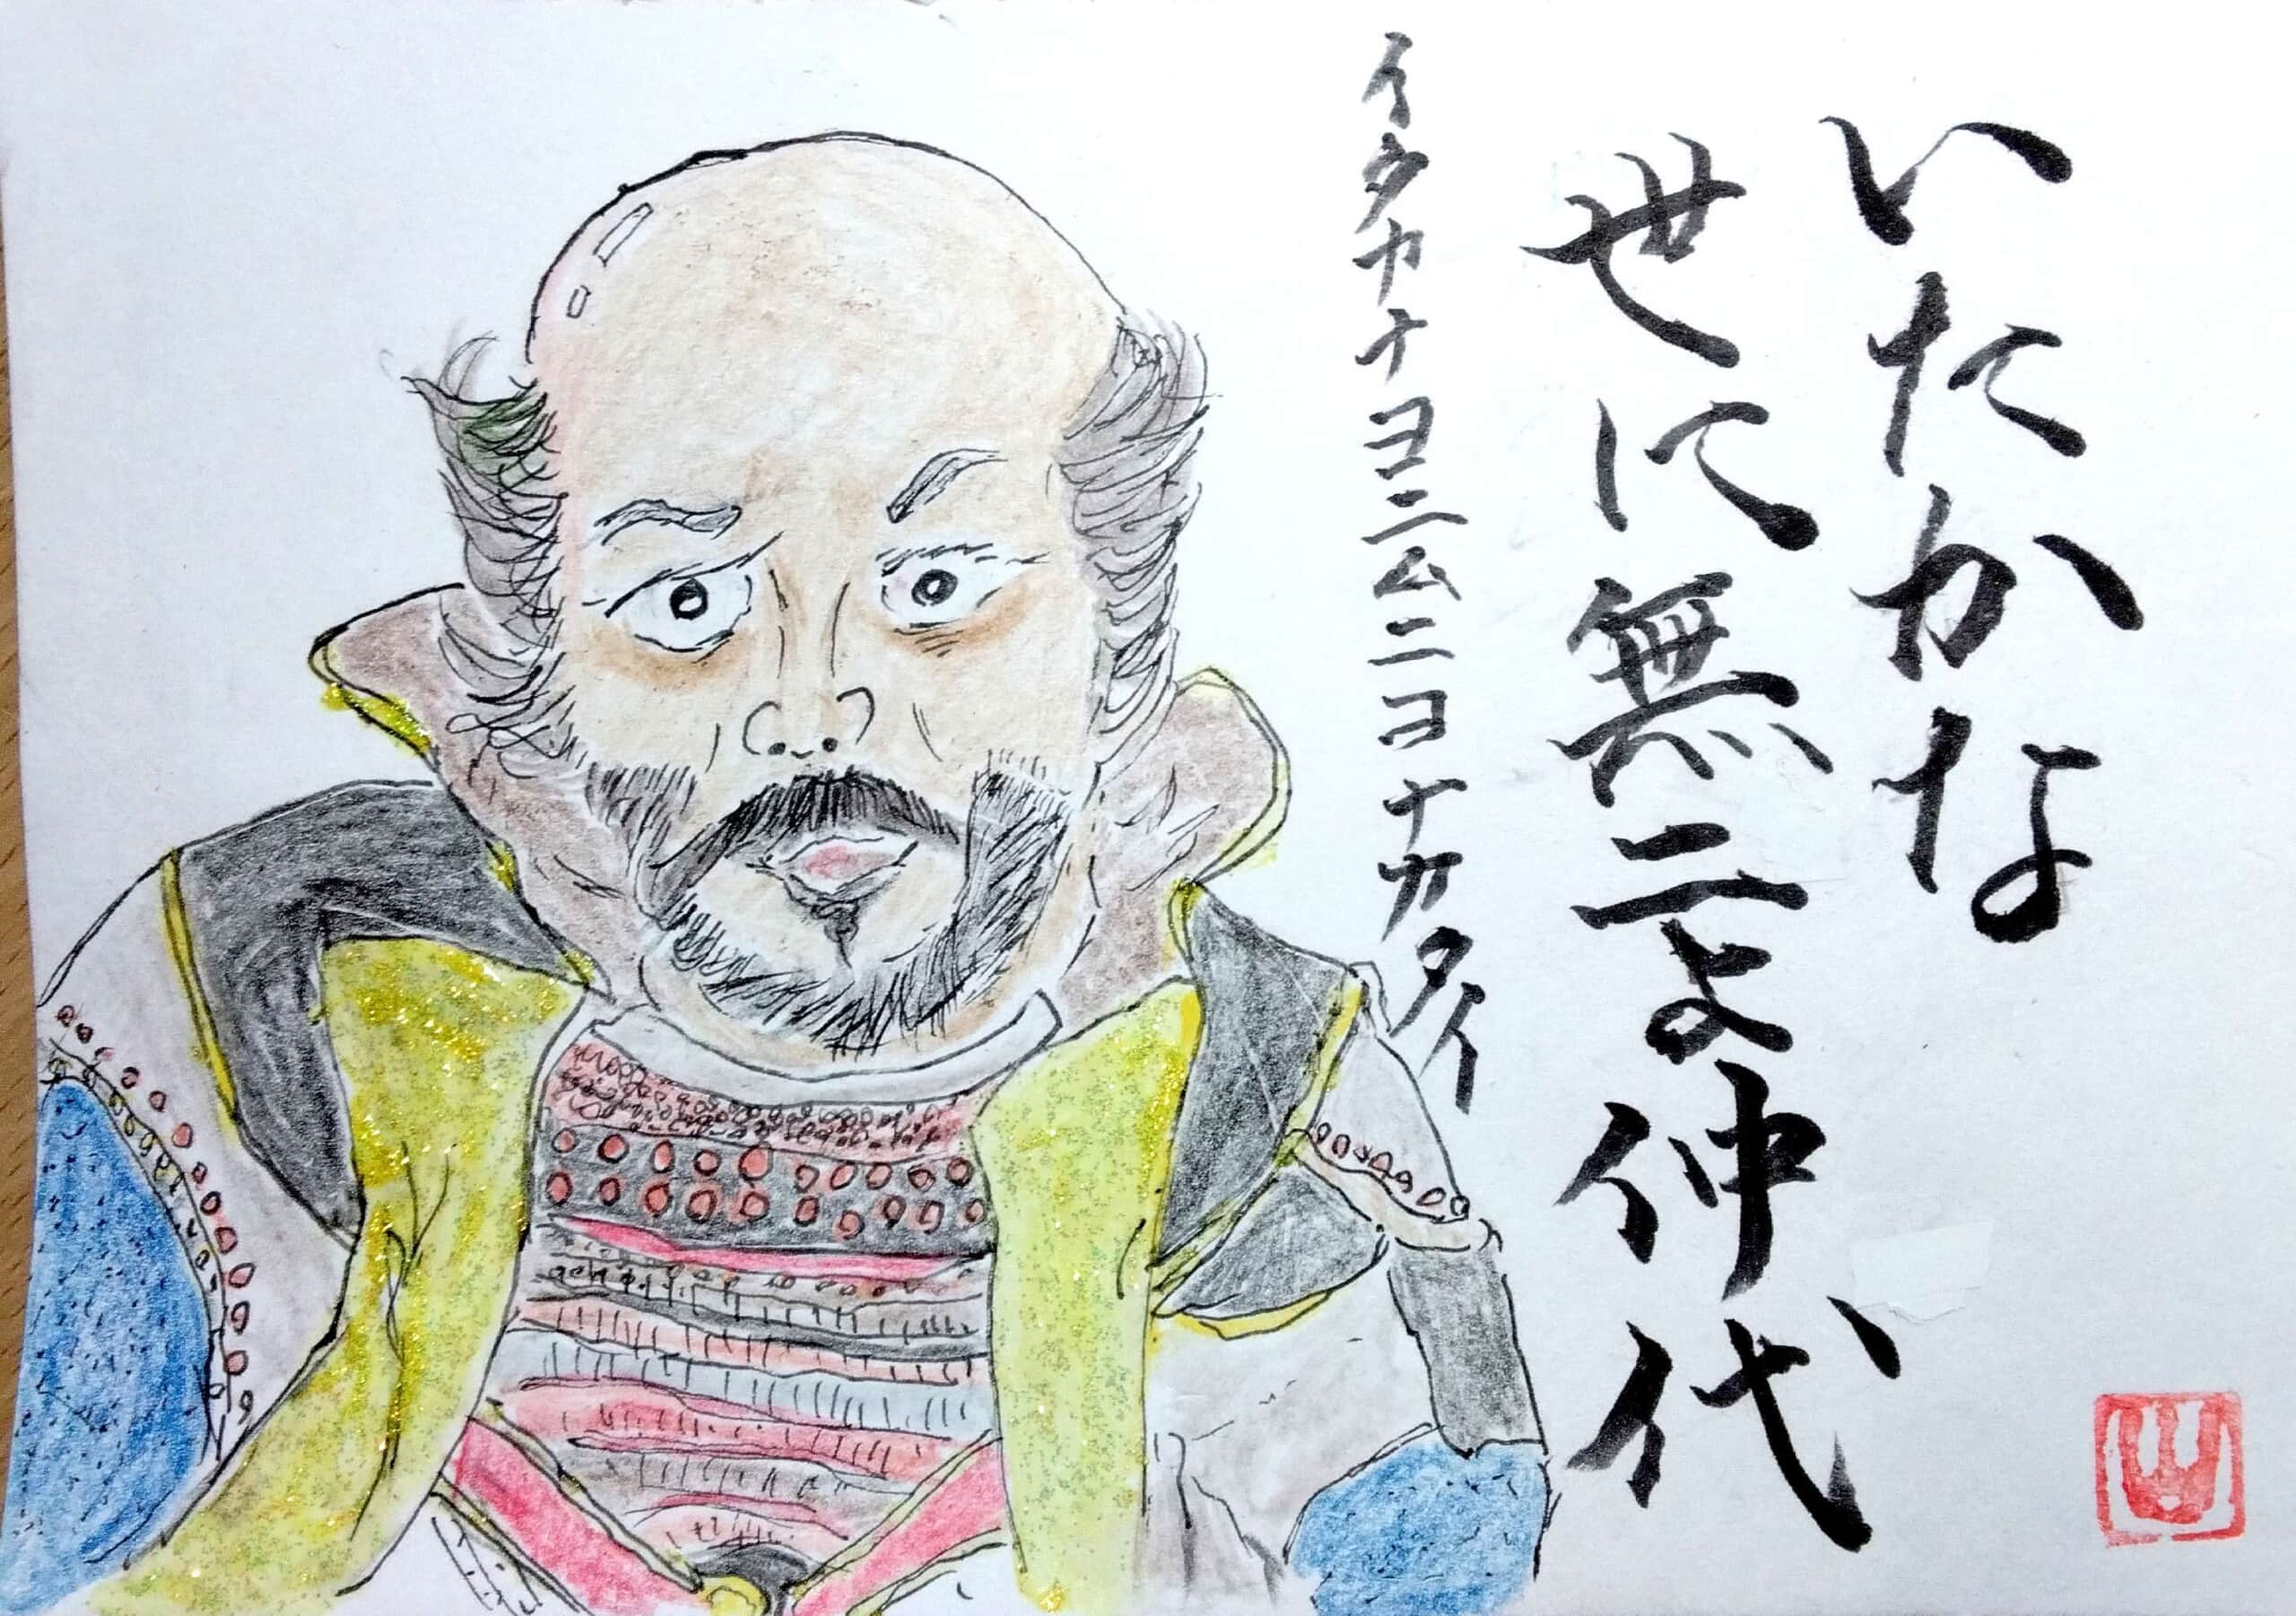 いたかな
世に無二よ仲代
イタカナヨニムニヨナカタイ